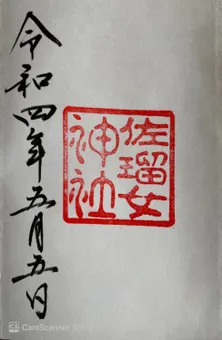 佐瑠女
神社
令和四年五月五日
CamScanner